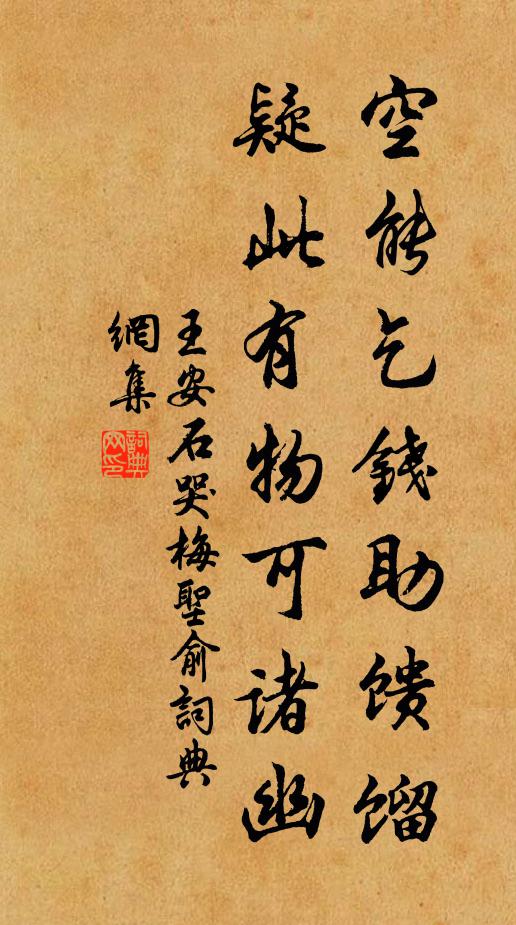 空能乞錢助馈馏
疑此有物可诸幽
王安石哭梅聖俞詞典
網集
詞典
网印